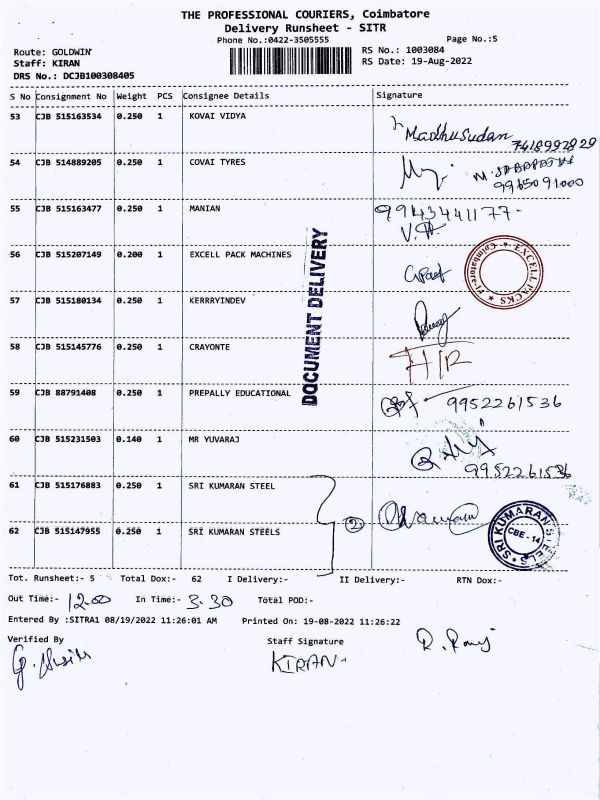 THE PROFESSIONAL COURIERS, Coimbatore
Delivery Runsheet - SITR
Phone No.:0422-3505555 Page No.:5
Route: GOLDWIN RS No.: 1003084
Staff: KIRAN RS Date: 19-Aug-2022
DRS No.: DCJB100308405
S No Consignment No Weight PCS Consignee Details Signature
53 CJB 515163534 0.250 1 KOVAI VIDYA
Madhusudan
54 CJB 514889205 0.250 1 COVAI TYRES
9965091000
55 CJB 515163477 0.250 1 MANIAN 9943441177-
56 CJB 515207149 0.200 1 EXCELL PACK MACHINES
EXCELL PACKS Coimbatore
57 CJB 515180134 0.250 1 KERRRYINDEV
DOCUMENT DELIVERY
58 CJB 515145776 0.250 1 CRAYONTE
59 CJB 88791408 0.250 1 PREPALLY EDUCATIONAL 9952261536
60 CJB 515231503 0.140 1 MR YUVARAJ
9952261536
61 CJB 515176883 0.250 1 SRI KUMARAN STEEL
2
62 CJB 515147955 0.250 1 SRI KUMARAN STEELS
SRI KUMARAN STEELS CBE - 14
Tot. Runsheet:- 5 Total Dox:- 62 I Delivery:- II Delivery:- RTN Dox:-
Out Time:- 12.00 In Time:- 3.30 Total POD:-
Entered By :SITRA1 08/19/2022 11:26:01 AM Printed On: 19-08-2022 11:26:22
Verified By Staff Signature
KIRAN